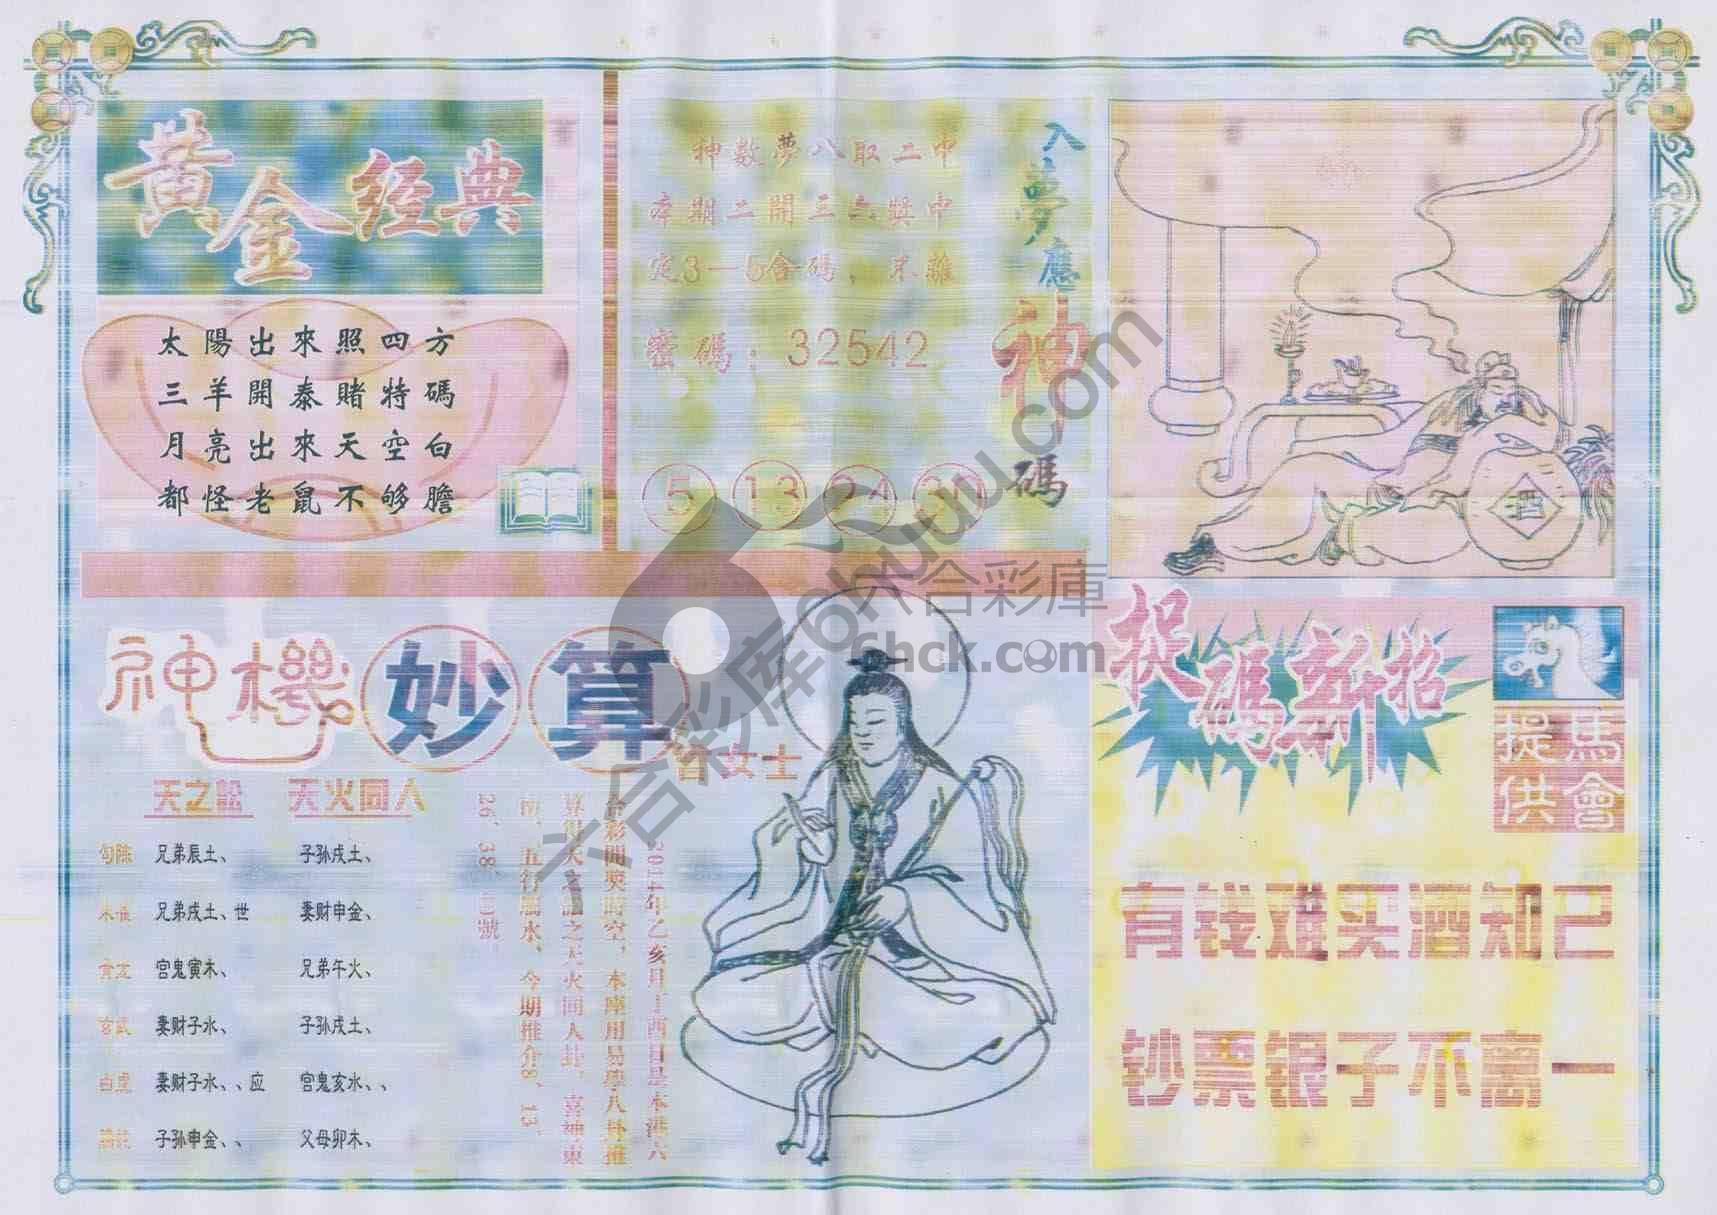 黄金经典
太陽出來照四方
三羊開泰賭特碼
月亮出來天空白
都怪老鼠不够膽
入夢應神碼
神數夢八取二中
本期二開三六獎中
定3—5合碼，不離
密碼：32542
5 13 24 30
神機妙算
白女士
天之訟 天火同人
勾陈 兄弟辰土、 子孙戌土、
朱雀 兄弟戌土、世 妻财申金、
青龙 宫鬼寅木、 兄弟午火、
玄武 妻财子水、 子孙戌土、
白虎 妻财子水、、应 宫鬼亥水、、
螣蛇 子孙申金、、 父母卯木、
2014年乙亥月丁酉日是本港六
合彩開奬時空，本座用易學八卦推
算得天之訟之天火同人卦，喜神東
南，五行屬水，今期推介8、13、
26、38、 號。
捉碼新招
馬會
提供
有钱难买酒知己
钞票银子不离一
六合彩庫
6hck.com
六合彩库6huuu.com